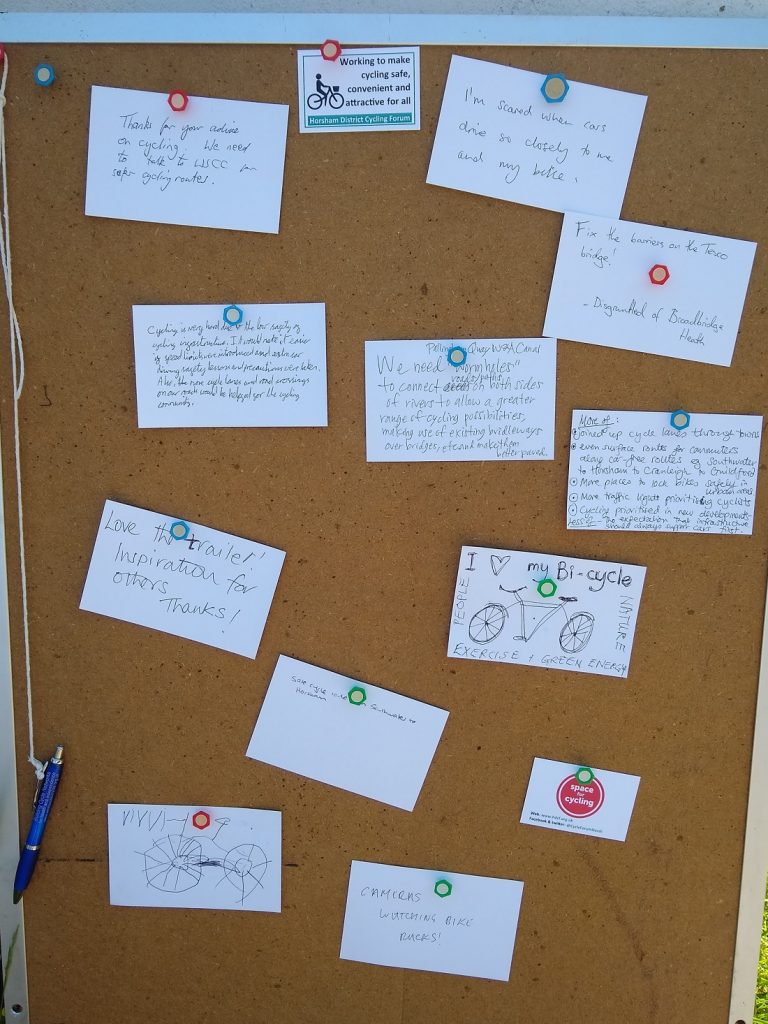 Working to make
cycling safe,
convenient and
attractive for all
Horsham District Cycling Forum
Thanks for your advice
on cycling. We need
to talk to WSCC for
safer cycling routes.
I'm scared when cars
drive so closely to me
and my bike.
Fix the barriers on the Tesco
bridge!
- Disgruntled of Broadbridge
Heath
Cycling is very hard due to the low safety of
cycling infrastructure. It would make it easier
if speed limits were introduced and extra car
driving safety lessons and precautions were taken.
Also, the more cycle lanes and road crossings
on our roads would be helpful for the cycling
community.
Quay W&A Canal
We need "wormholes"
roads/paths
to connect on both sides
of rivers to allow a greater
range of cycling possibilities,
making use of existing bridleways
over bridges, etc and make them
better paved.
More of:
joined up cycle lanes through towns
even surface routes for commuters
along car-free routes eg Southwater
to Horsham to Cranleigh to Guildford
More places to lock bikes safely in
urban areas
More traffic lights prioritising cyclists
Cycling prioritised in new developments
less of - the expectation that infrastructure
should always support cars first.
Love the trailer!
Inspiration for
others
Thanks!
I ♡ my Bi-cycle
PEOPLE
NATURE
EXERCISE + GREEN ENERGY
Safe cycle Southwater to
Horsham
space
for
cycling
Web:
Facebook & twitter:
CAMERAS
WATCHING BIKE
RACKS!